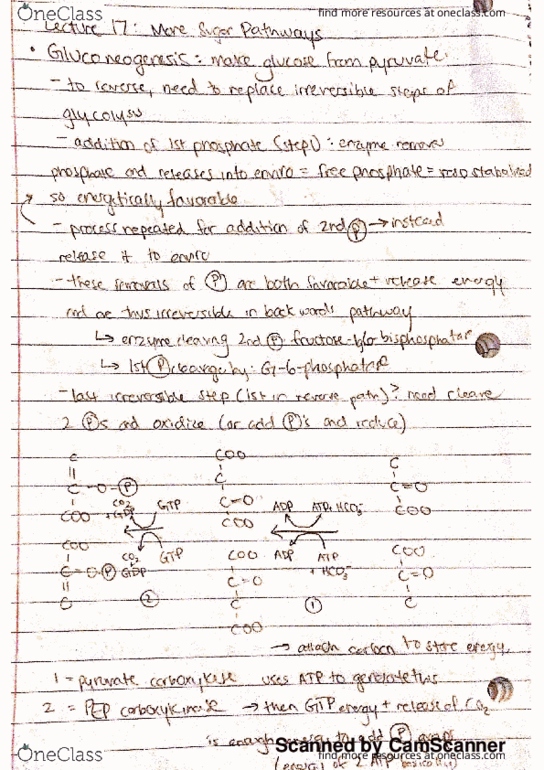 OneClass
find more resources at oneclass.com
Lecture 17: More Sugar Pathways
• Gluconeogenesis: make glucose from pyruvate
- to reverse, need to replace irreversible steps of
glycolysis
- addition of 1st phosphate (step 1): enzyme removes
phosphate and releases into enviro = free phosphate = reso stabalized
so energetically favorable
- process repeated for addition of 2nd P → instead
release it to enviro
- these removals of P are both favorable + release energy
and are thus irreversible in backwards pathway
↳ enzyme cleaving 2nd P: fructose-1,6 bisphosphatase
↳ 1st P cleavage by: G-6-phosphatase
- last irreversible step (1st in reverse path)? need cleave
2 P's and oxidize (or add P's and reduce)
C COO C
C-O-P C C=O
COO C=O COO
COO
CO2 + GDP GTP ADP ATP, HCO3-
CO2 GDP GTP ADP ATP + HCO3-
COO COO COO
C-O-P C=O C=O
C C C
COO
2 1
→ attach carbon to store energy
1 = pyruvate carboxykase uses ATP to generate this
2 = PEP carboxykinase → then GTP energy + release of CO2
is enough energy to add P
Scanned by CamScanner
OneClass
find more resources at oneclass.com
(energy of 2 ATP